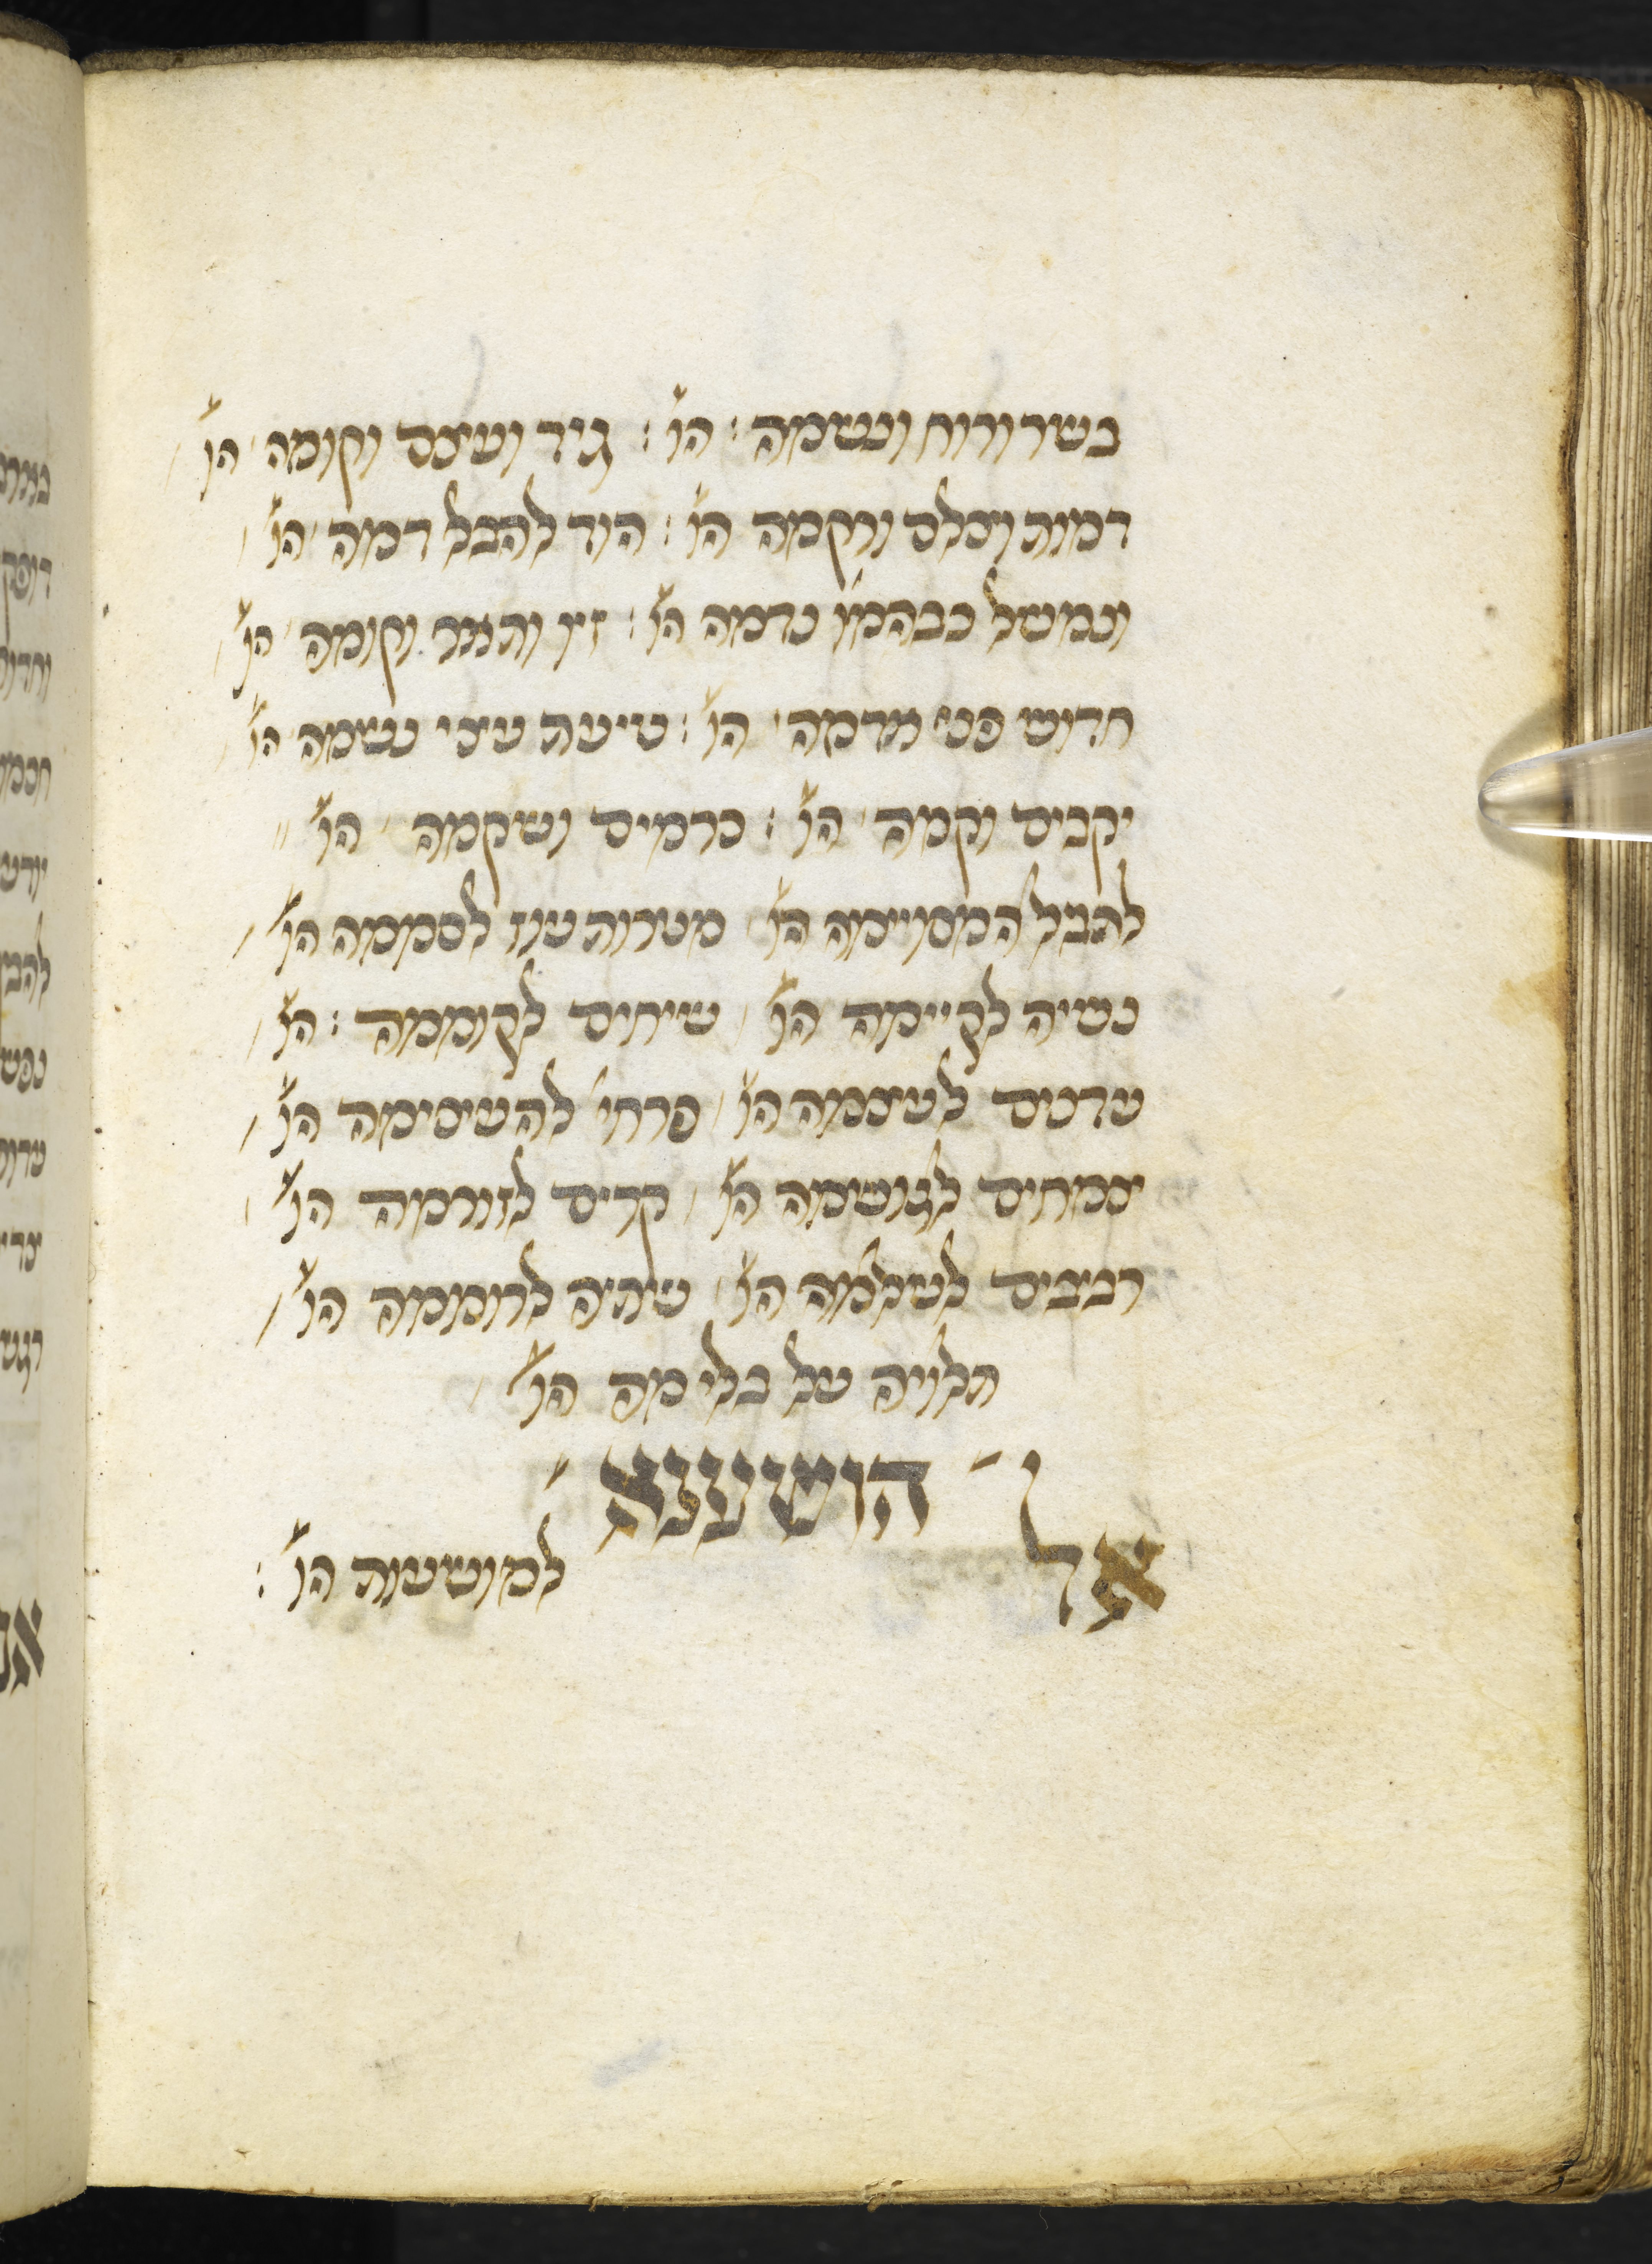 בשר ורוח ונשמה : הו : גיד ועצם וקומה הו
דמות וצלם ורקמה הו : הוד להבל דמה הו
ונמשל כבהמו נדמה הו : זיו ותאר וקומה הו
חדוש פני אדמה הו : טיעת עצי נשמה הו
יקבים וקמה הו : כרמים ושקמה הו
לתבל המסויימה הו מטרות עוז לסממה הו
נשיה לקיימה הו שיחים לקוממה : הו
עדנים לעצמה הו פרחי להעצימה הו
צמחים לגושמה הו קרים לזורמה הו
רביבים לשלמה הו שתיה לרוממה הו
תלויה על בלימה הו
הושענא
אל
למושעות הו :